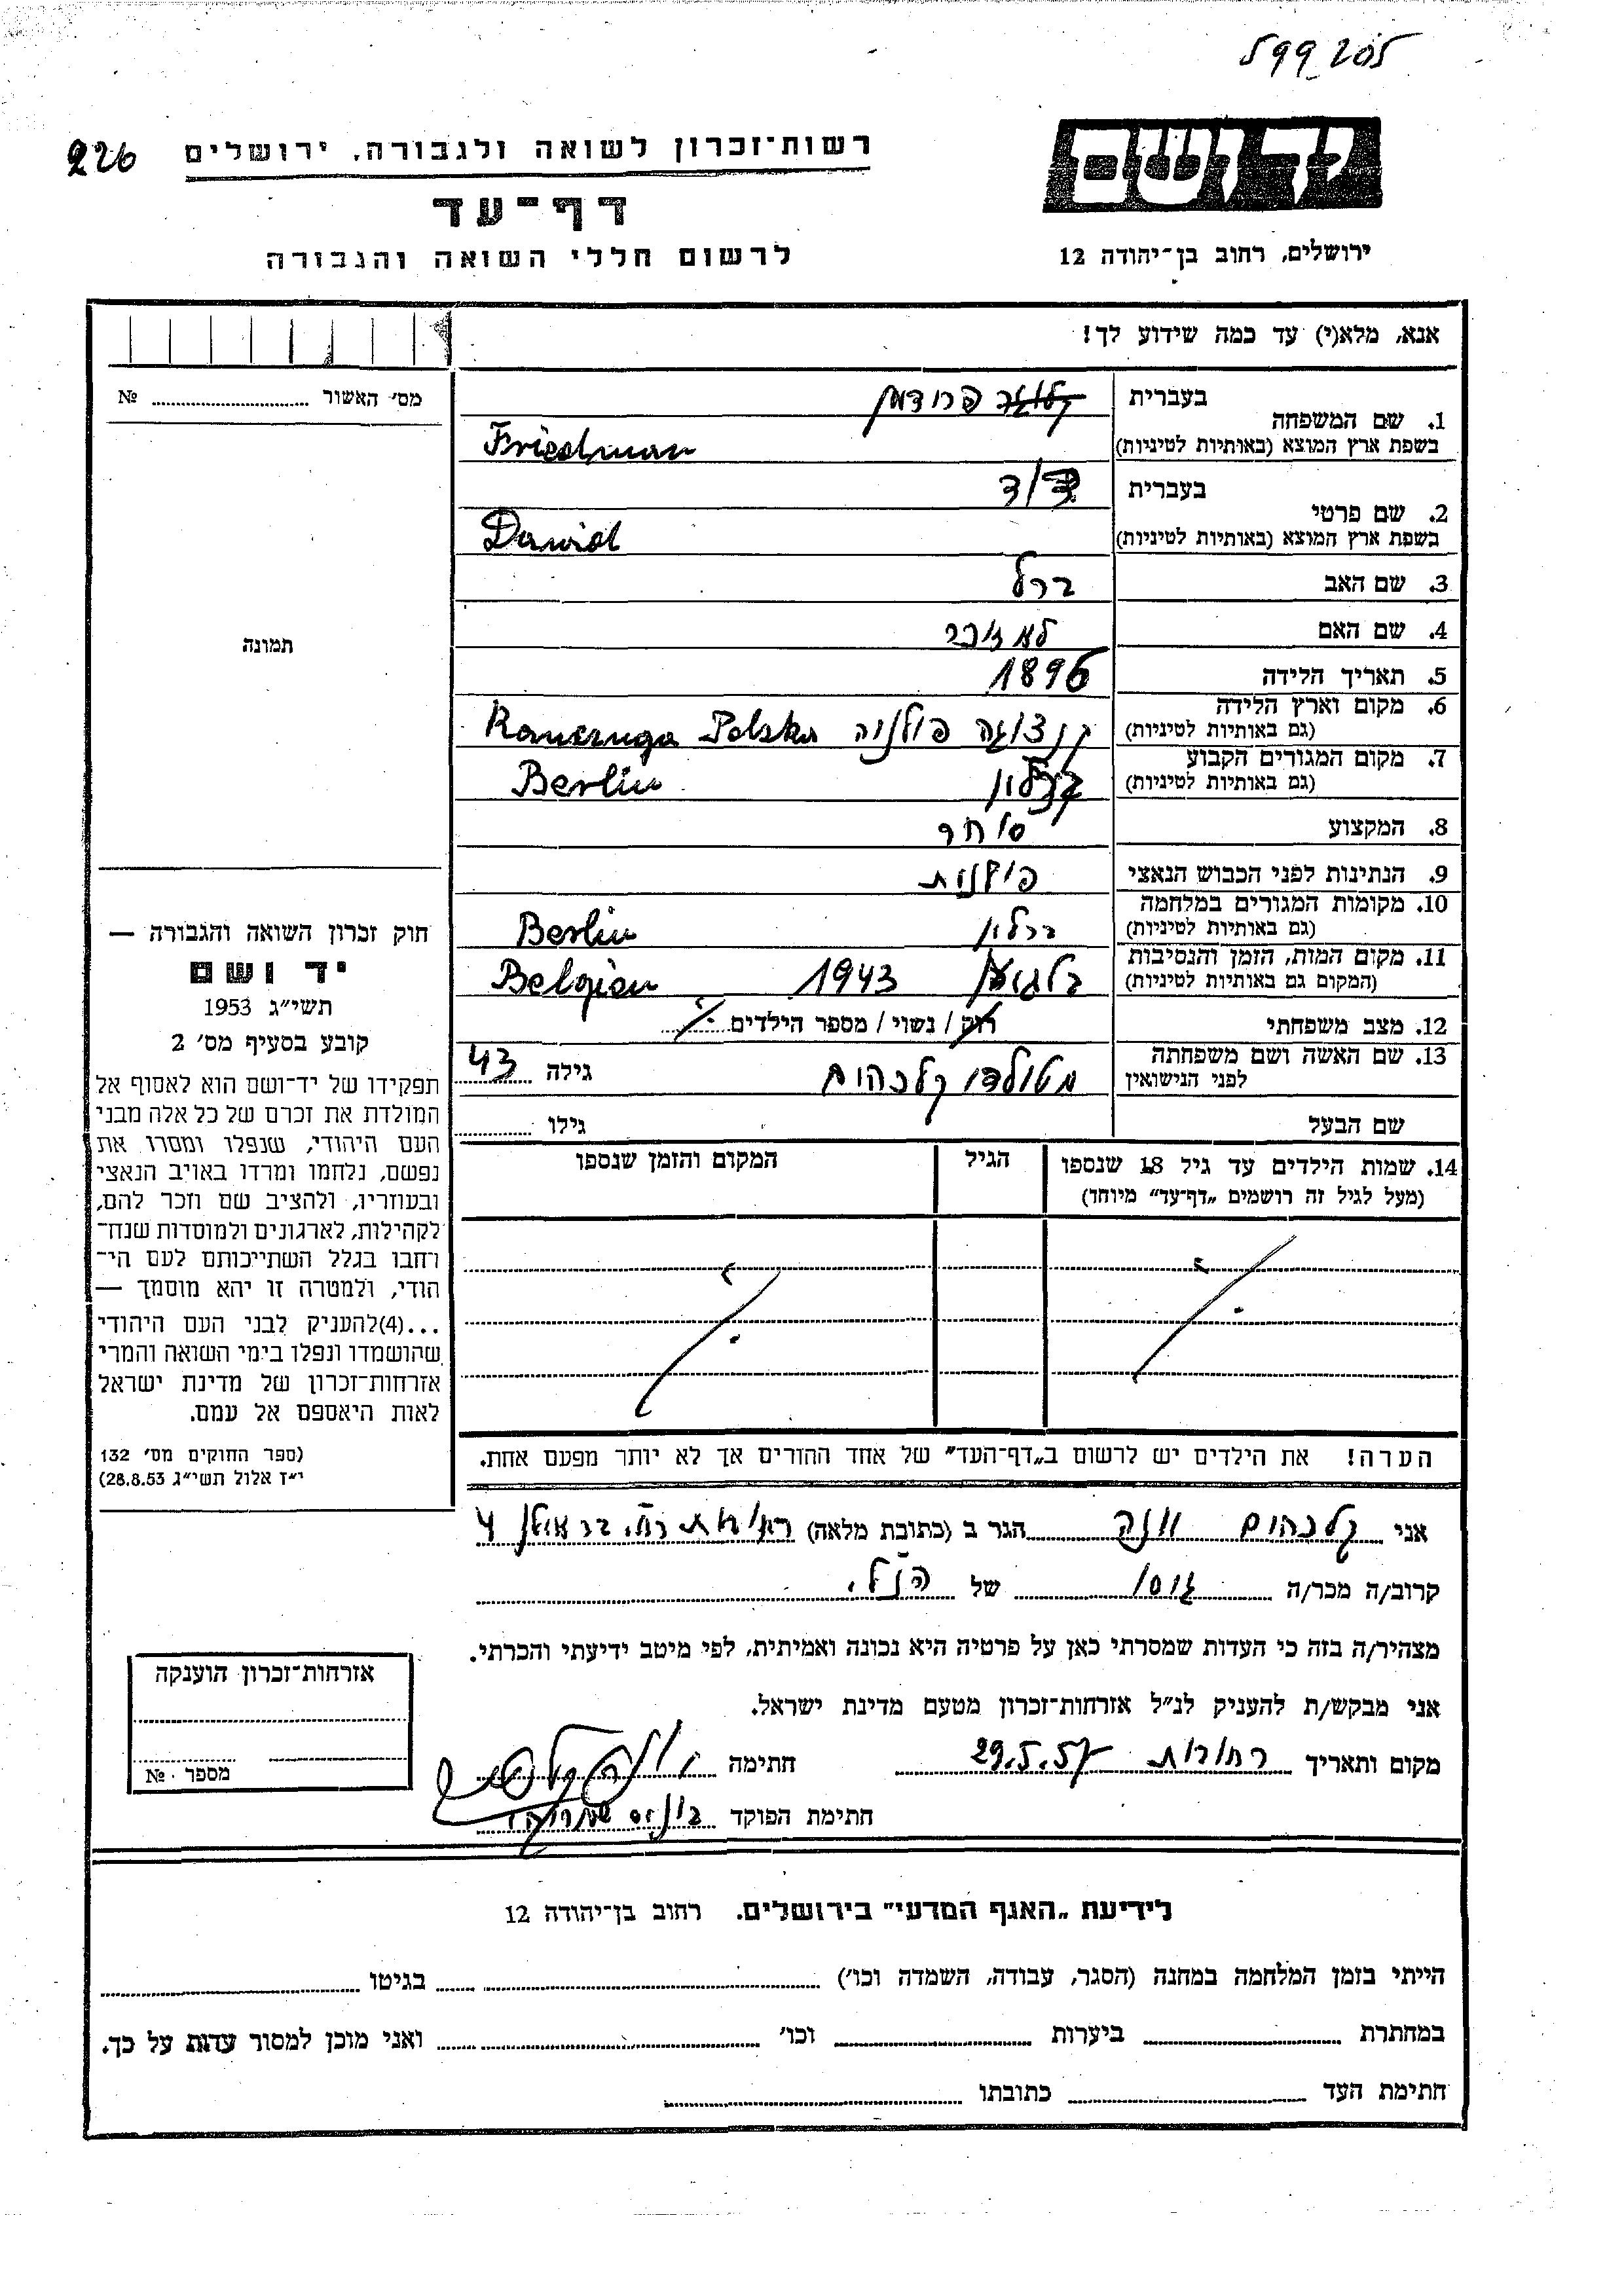 226
רשות־זכרון לשואה ולגבורה, ירושלים
יד ושם
דף־עד
לרשום חללי השואה והגבורה
ירושלים, רחוב בן־יהודה 12
אנא, מלא(י) עד כמה שידוע לך!
מס׳ האשור № 
1. שם המשפחה
בעברית פרידמן
בשפת ארץ המוצא (באותיות לטיניות) Friedman
2. שם פרטי
בעברית דוד
בשפת ארץ המוצא (באותיות לטיניות) Dawid
3. שם האב ברל
4. שם האם לא זוכר
5. תאריך הלידה 1896
6. מקום וארץ הלידה
(גם באותיות לטיניות) קנצוגה פולניה Kanczuga Polska
7. מקום המגורים הקבוע
(גם באותיות לטיניות) ברלין Berlin
8. המקצוע סוחר
9. הנתינות לפני הכבוש הנאצי פולנית
10. מקומות המגורים במלחמה
(גם באותיות לטיניות) ברלין Berlin
11. מקום המות, הזמן והנסיבות
(המקום גם באותיות לטיניות) 1943 Belgien
12. מצב משפחתי רווק / נשוי / מספר הילדים
13. שם האשה ושם משפחתה
לפני הנישואין קלכהים גילה 43
שם הבעל גילו
14. שמות הילדים עד גיל 18 שנספו
(מעל לגיל זה רושמים „דף־עד״ מיוחד)
הגיל
המקום והזמן שנספו
הערה! את הילדים יש לרשום ב„דף־העד״ של אחד ההורים אך לא יותר מפעם אחת.
תמונה
חוק זכרון השואה והגבורה —
יד ושם
תשי״ג 1953
קובע בסעיף מס׳ 2
תפקידו של יד־ושם הוא לאסוף אל
המולדת את זכרם של כל אלה מבני
העם היהודי, שנפלו ומסרו את
נפשם, נלחמו ומרדו באויב הנאצי
ובעוזריו, ולהציב שם וזכר להם,
לקהילות, לארגונים ולמוסדות שנח־
רחבו בגלל השתייכותם לעם הי־
הודי, ולמטרה זו יהא מוסמך —
...(4)להעניק לבני העם היהודי
שהושמדו ונפלו בימי השואה והמרי
אזרחות־זכרון של מדינת ישראל
לאות היאספם אל עמם.
(ספר החוקים מס׳ 132
י״ז אלול תשי״ג 28.8.53)
אני קלכהים הגר ב (כתובת מלאה) רחובות
קרוב/ה מכר/ה גיסו של הנ״ל
מצהיר/ה בזה כי העדות שמסרתי כאן על פרטיה היא נכונה ואמיתית, לפי מיטב ידיעתי והכרתי.
אני מבקש/ת להעניק לנ״ל אזרחות־זכרון מטעם מדינת ישראל.
מקום ותאריך רחובות 29.5.57 חתימה
חתימת הפוקד
אזרחות־זכרון הוענקה
מספר № 
לידיעת „האגף המדעי״ בירושלים. רחוב בן־יהודה 12
הייתי בזמן המלחמה במחנה (הסגר, עבודה, השמדה וכו׳) בגיטו
במחתרת ביערות וכו׳ ואני מוכן למסור עדות על כך.
חתימת העד כתובתו